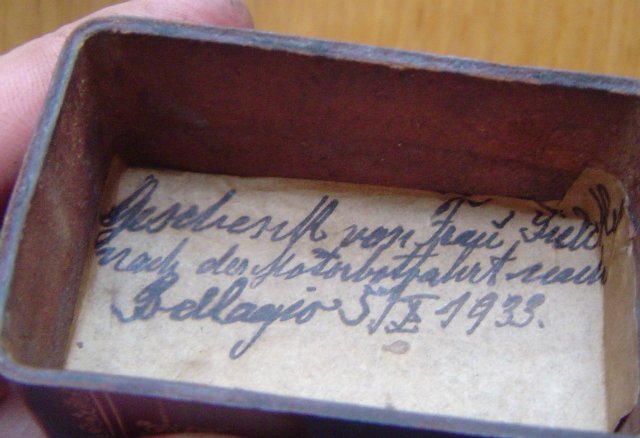 Geschenk von Frau
nach der Motorbotfahrt nach
Bellagio 5/X 1933.